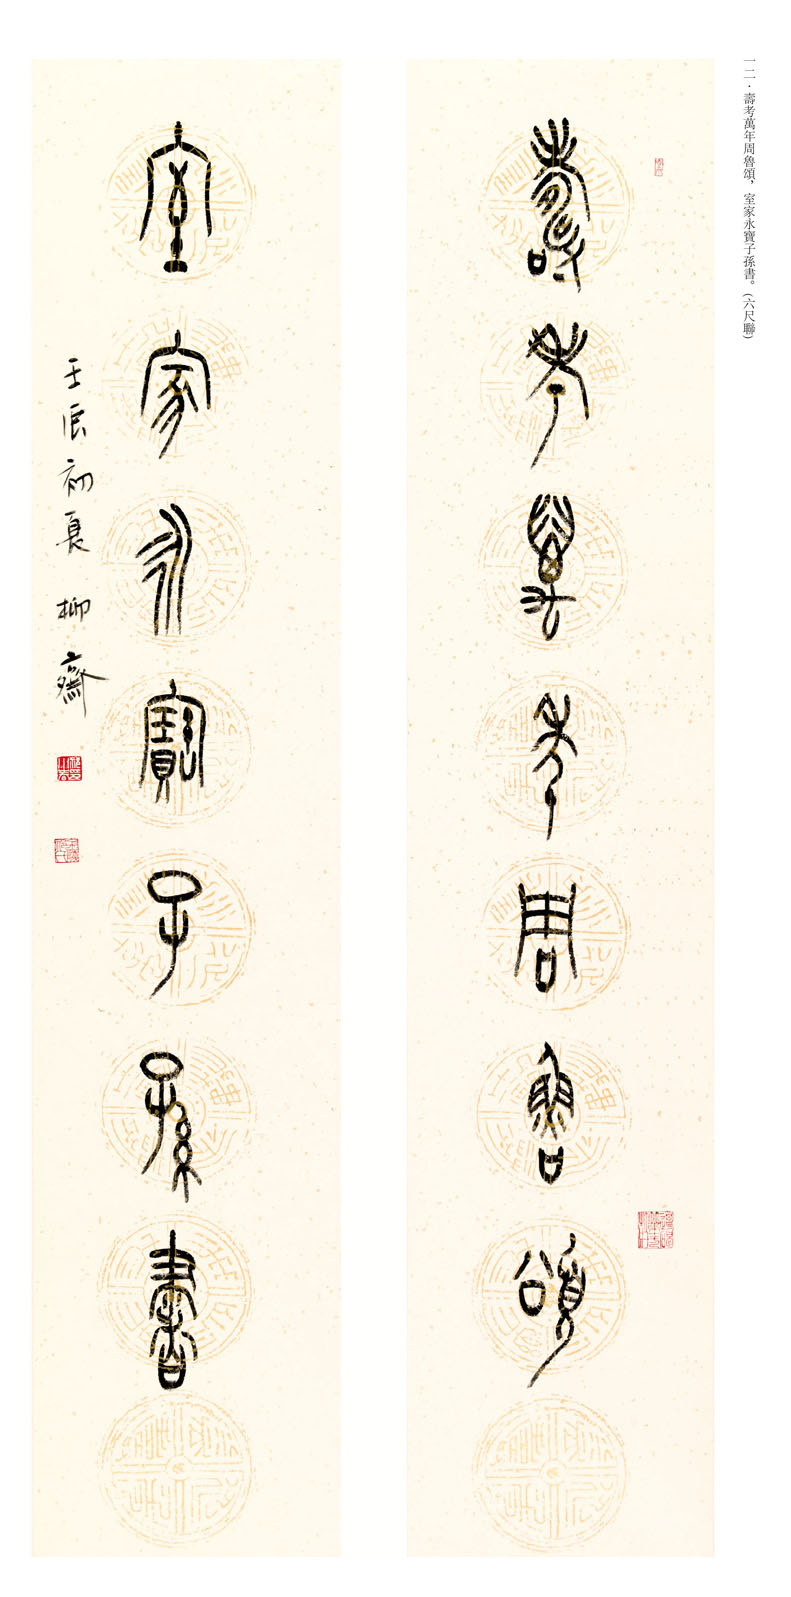 一二·壽考萬年周魯頌，室家永寶子孫書。(六尺聯)
壽考萬年周魯頌
室家永寶子孫書
壬辰初夏 柳齋